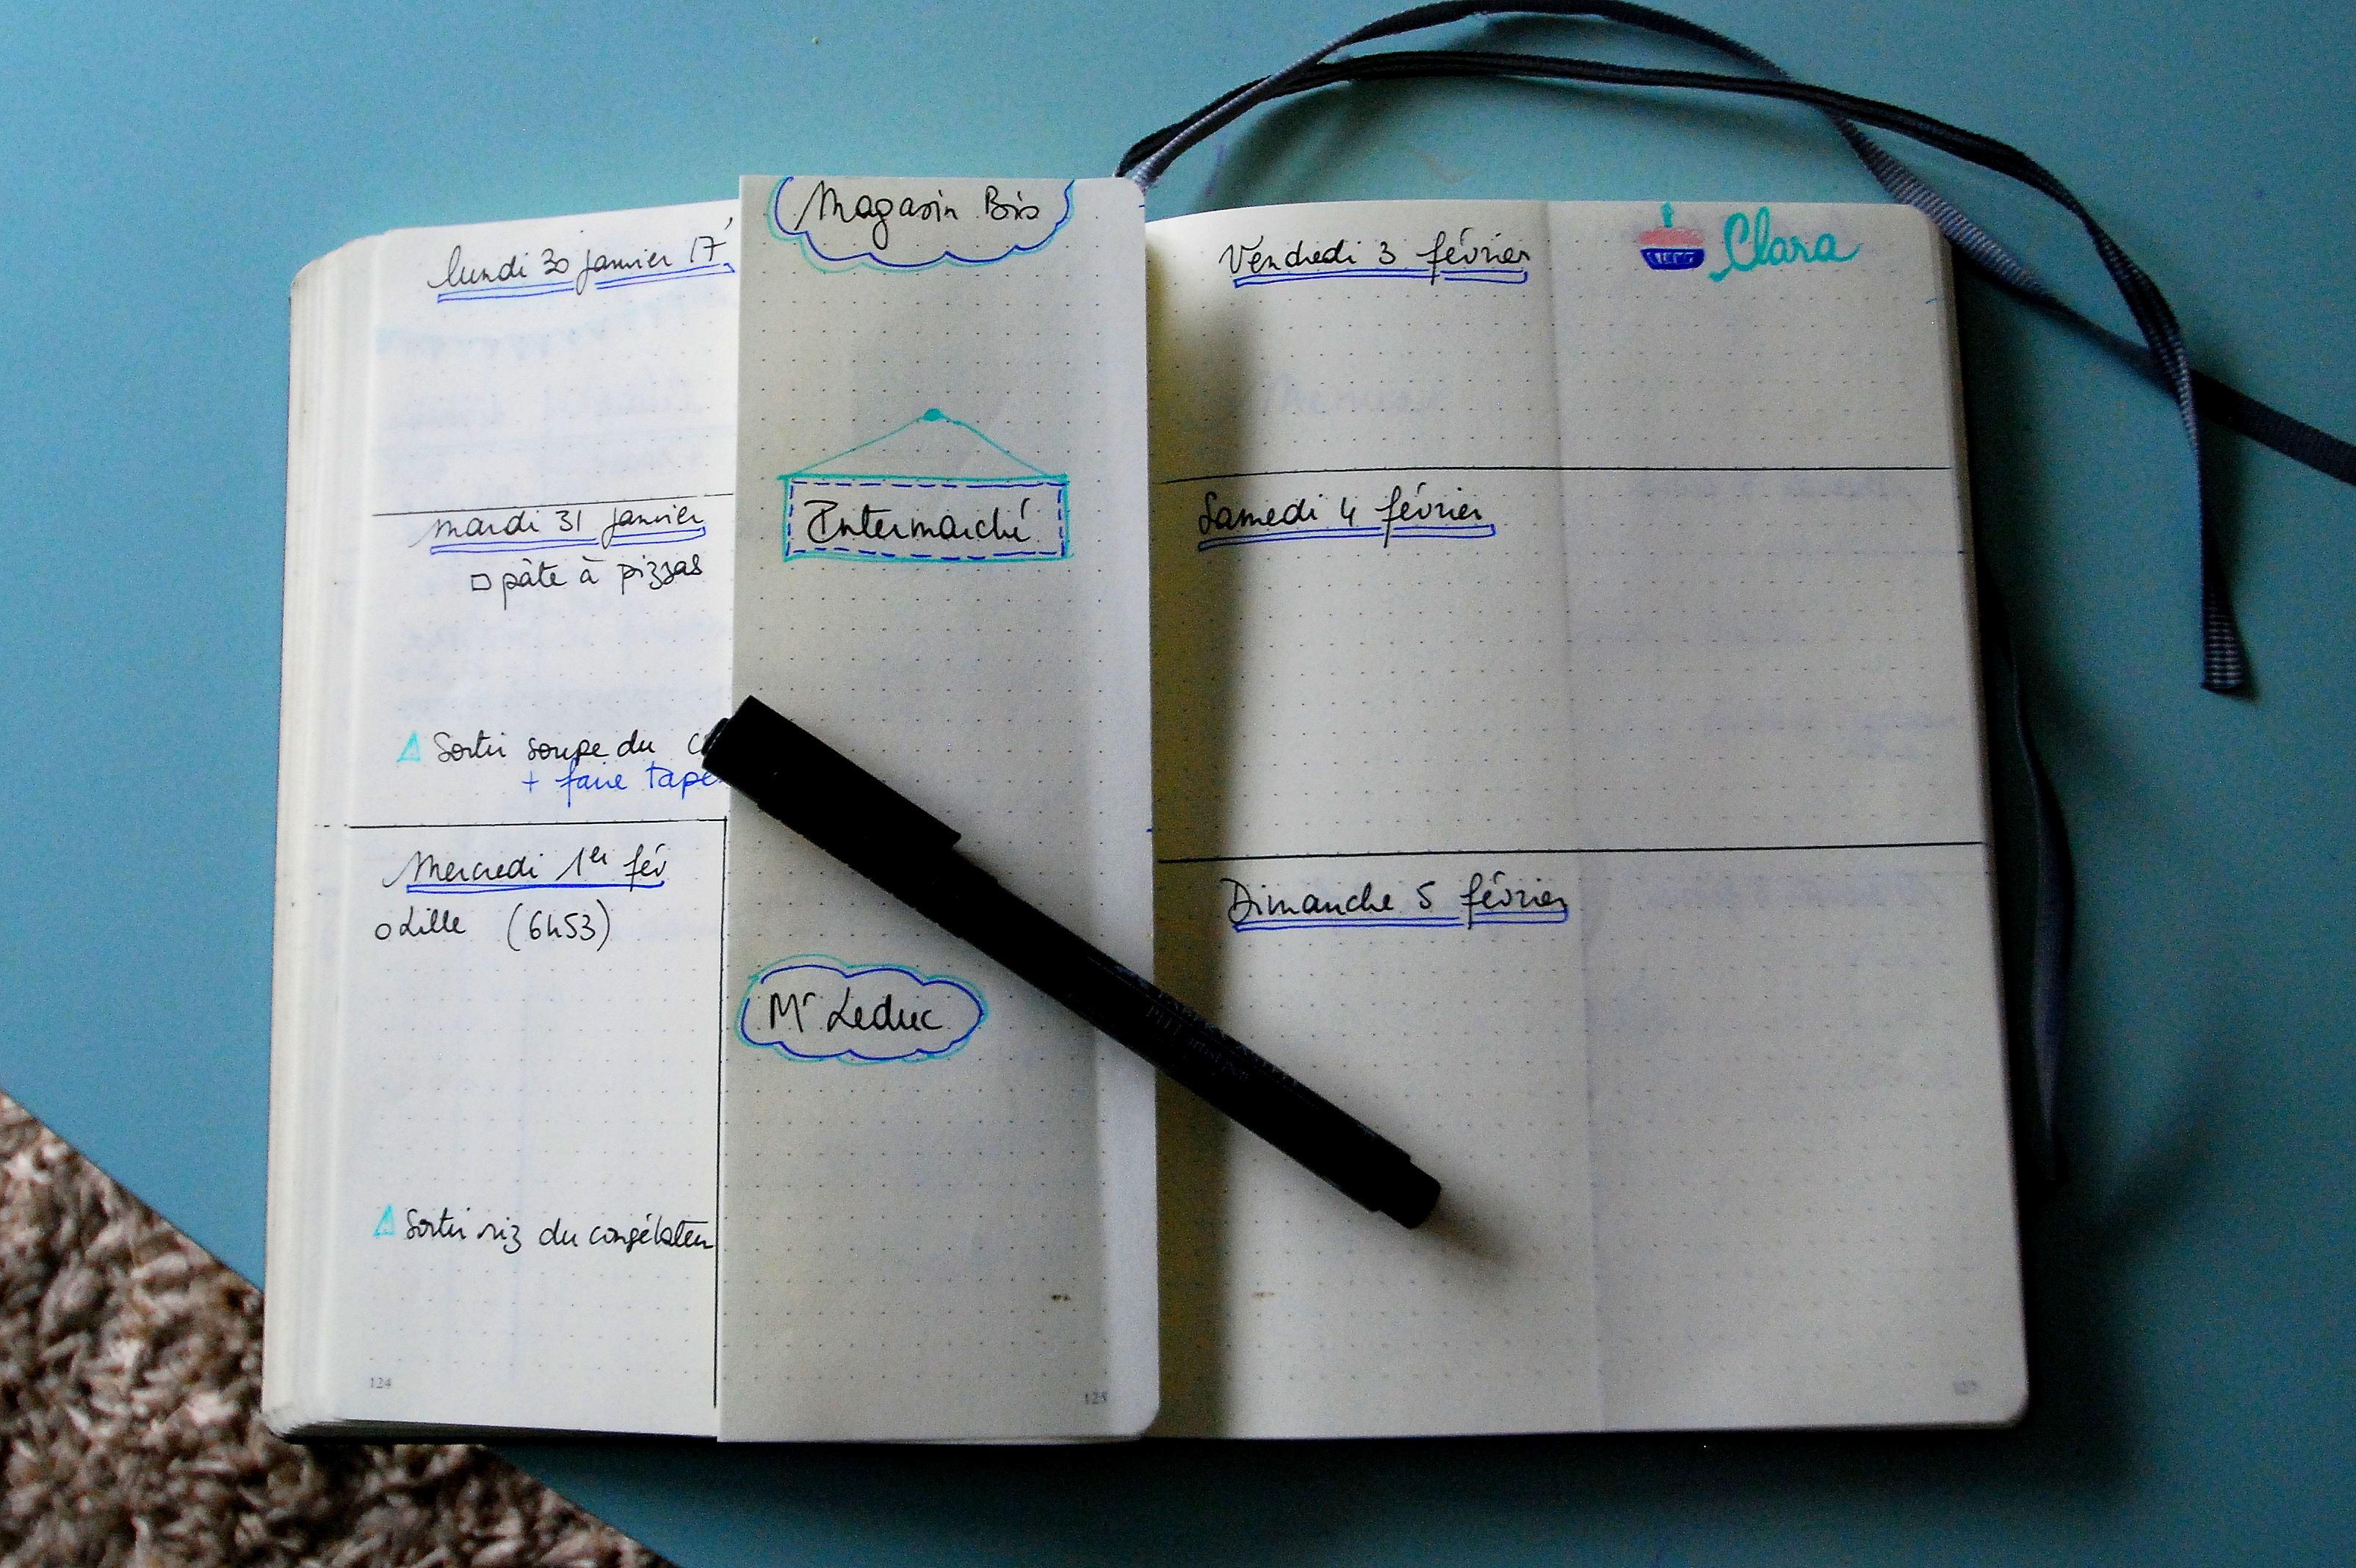 lundi 30 janvier 17
mardi 31 janvier
pâte à pizzas
Sortir soupe du
+ faire
Mercredi 1er fév
Lille (6h53)
Sortir riz du congélateu
124
Magasin Bio
Intermarché
Mr Leduc
125
Vendredi 3 février
Clara
Samedi 4 février
Dimanche 5 février
127